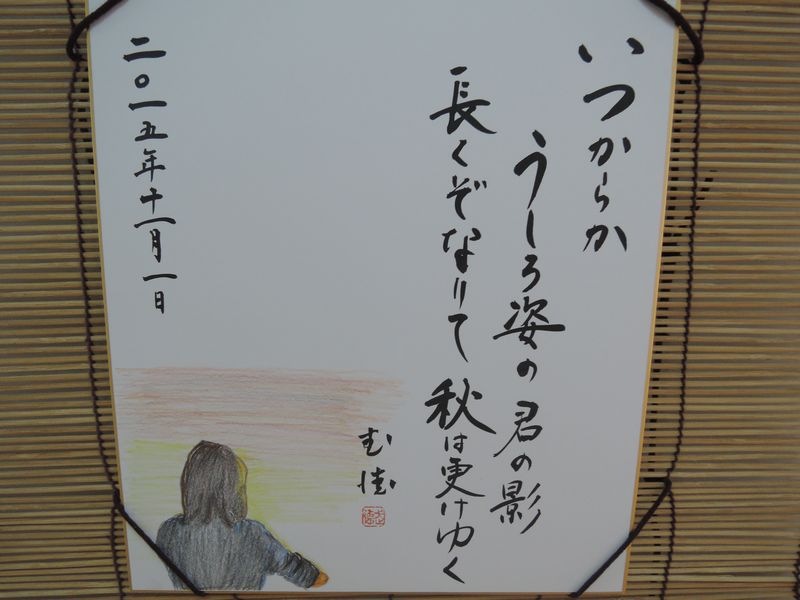 いつからか
うしろ姿の君の影
長くぞなりて秋は更けゆく
二〇一五年十一月一日